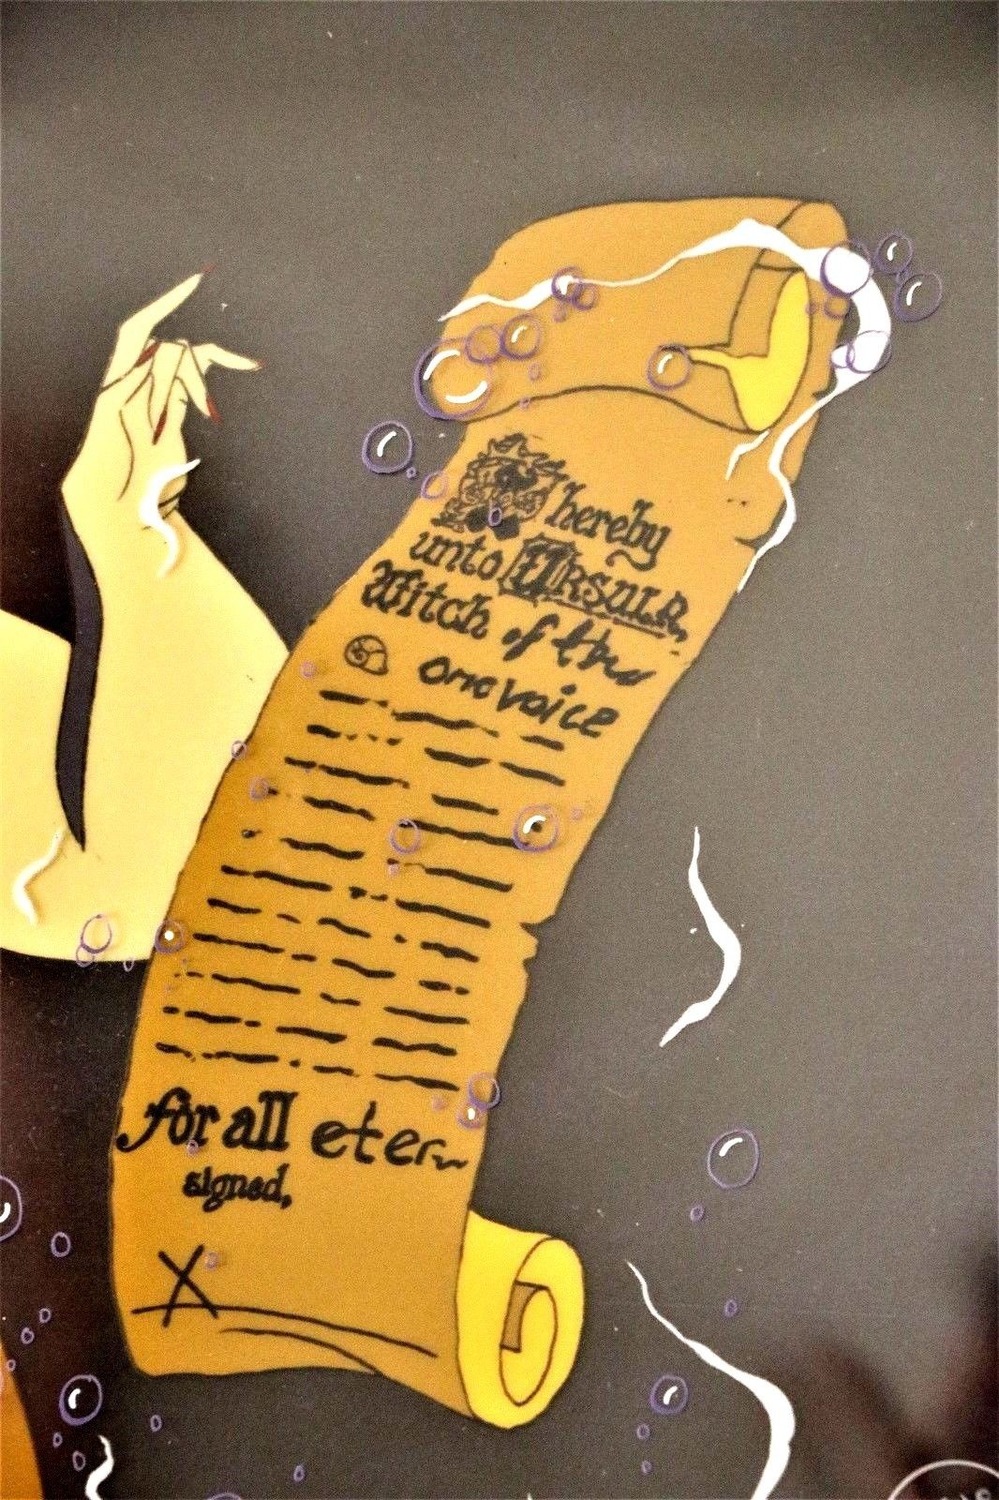 hereby
unto Ursula,
Witch of the
one voice
for all eter
signed,
X